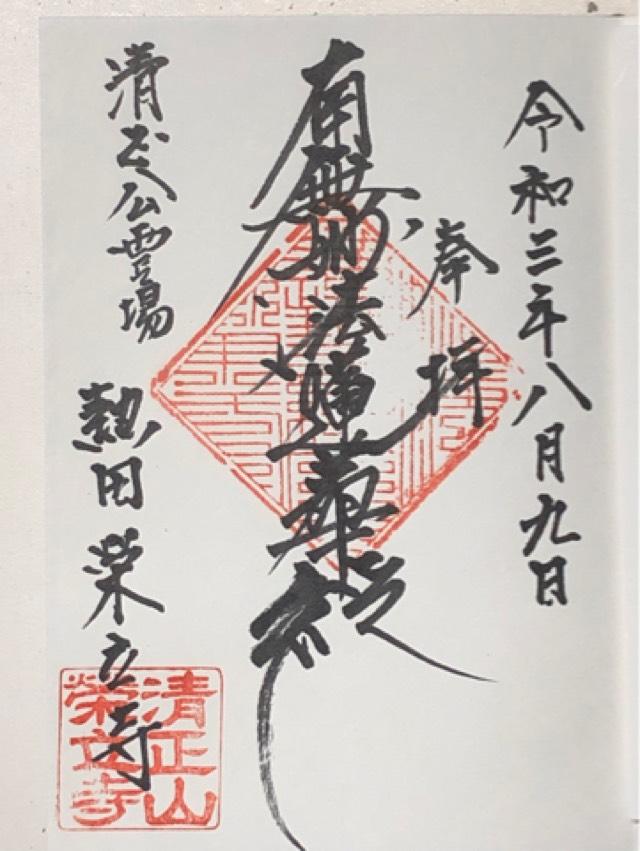 令和三年八月九日
奉拝
南無妙法蓮華経
清正公霊場
熱田 栄立寺
清正山
榮立寺